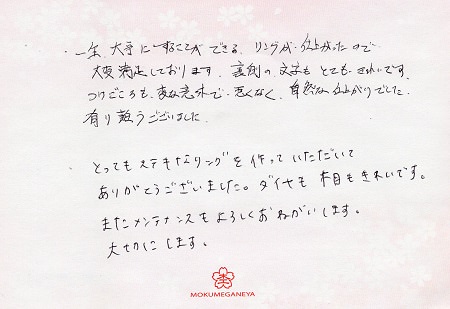 ・一生 大事にすることができる、リングが、仕上がったので
大変満足しております。裏側の文字も とても きれいです。
つけごこちも、変な意味で 悪くなく、自然な 仕上がりでした。
有り難うございました。
・とってもステキなリングを作っていただいて
ありがとうございました。ダイヤも 木目もきれいです。
またメンテナンスもよろしくおねがいします。
大切にします。
MOKUMEGANEYA